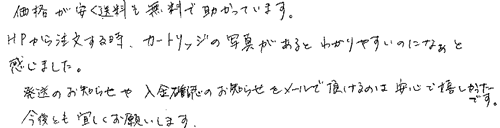 価格が安く送料も無料で助かっています。
HPから注文する時、カートリッジの写真があるとわかりやすいのになぁと
感じました。
発送のお知らせや入金確認のお知らせをメールで頂けるのは安心で嬉しかった
です。
今後とも宜しくお願いします。